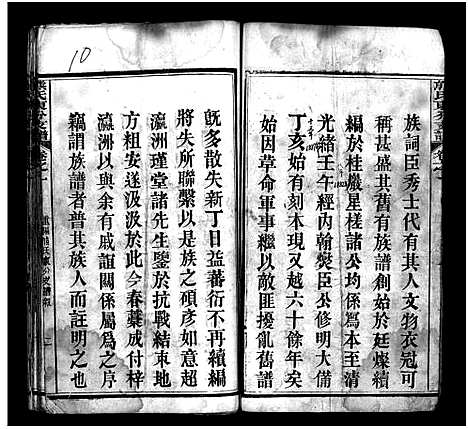 族詞臣秀士代有其人文物衣冠可
稱甚盛其舊有族譜創始於廷燦續
編於桂巖星槎諸公均係為本至清
光緒壬午經內翰熒臣公修明大備
丁亥始有刻本現又越六十餘年矣
始因草命軍事繼以敵匪擾亂舊譜
既多散失新丁日益蕃衍不再續編
將失所聯繫以是族之碩彥如意超
瀛洲瑾堂諸先生鑒於抗戰結束地
方粗安遂汲汲於此今春藁成付梓
瀛洲以與余有戚誼關係屬為之序
竊謂族譜者普其族人而註明之也
10